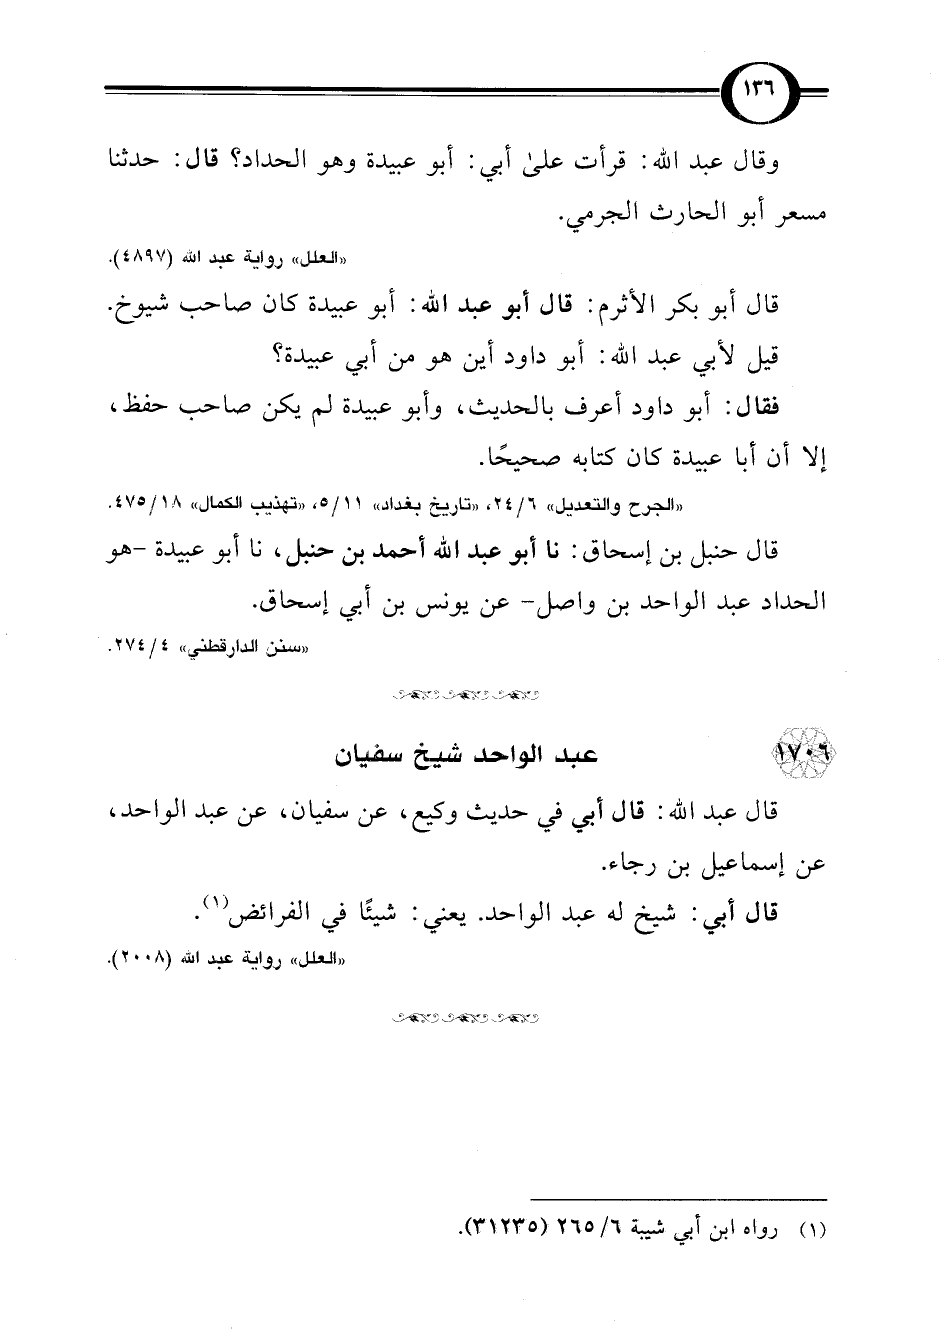 ١٣٦
وقال عبد الله: قرأت علىٰ أبي: أبو عبيدة وهو الحداد؟ قال: حدثنا
مسعر أبو الحارث الجرمي.
«العلل» رواية عبد الله (٤٨٩٧).
قال أبو بكر الأثرم: قال أبو عبد الله: أبو عبيدة كان صاحب شيوخ.
قيل لأبي عبد الله: أبو داود أين هو من أبي عبيدة؟
فقال: أبو داود أعرف بالحديث، وأبو عبيدة لم يكن صاحب حفظ،
إلا أن أبا عبيدة كان كتابه صحيحًا.
«الجرح والتعديل» ٢٤/٦، «تاريخ بغداد» ٥/١١، «تهذيب الكمال» ٤٧٥/١٨.
قال حنبل بن إسحاق: نا أبو عبد الله أحمد بن حنبل، نا أبو عبيدة -هو
الحداد عبد الواحد بن واصل- عن يونس بن أبي إسحاق.
«سنن الدارقطني» ٢٧٤/٤.
١٧٠٦ عبد الواحد شيخ سفيان
قال عبد الله: قال أبي في حديث وكيع، عن سفيان، عن عبد الواحد،
عن إسماعيل بن رجاء.
قال أبي: شيخ له عبد الواحد. يعني: شيئًا في الفرائض(١).
«العلل» رواية عبد الله (٢٠٠٨).
(١) رواه ابن أبي شيبة ٢٦٥/٦ (٣١٢٣٥).